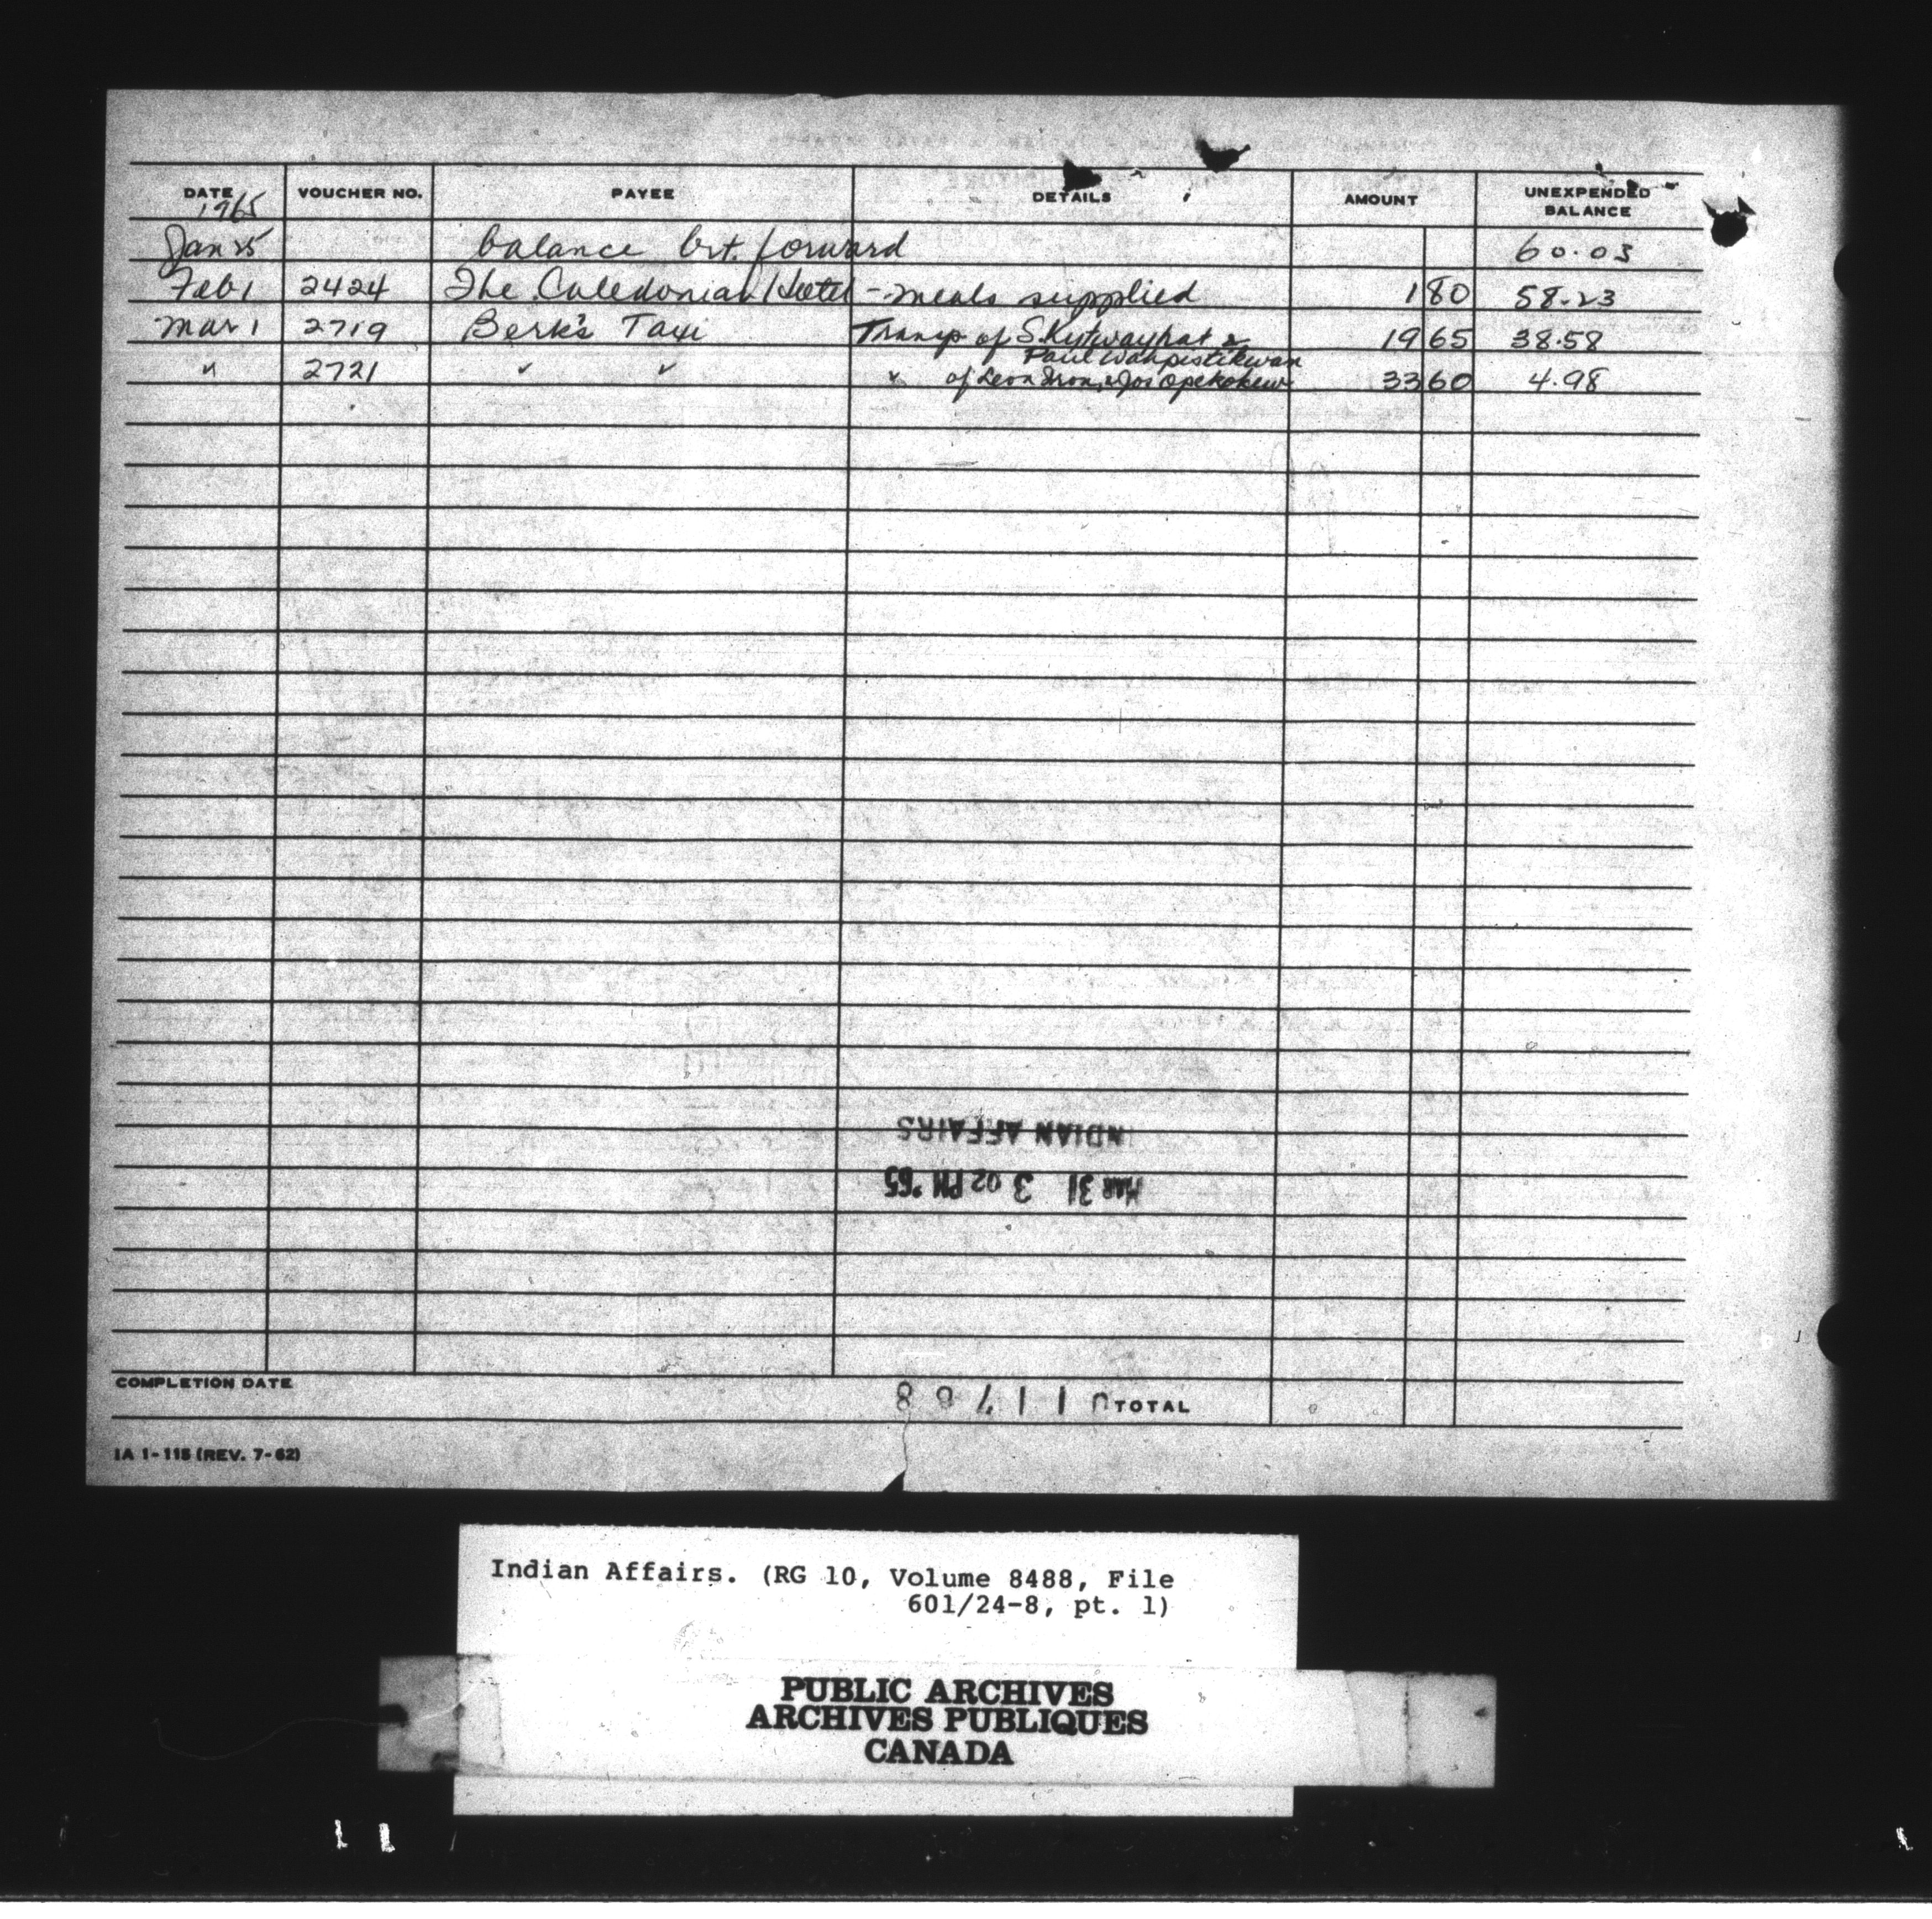 DATE VOUCHER NO. PAYEE DETAILS AMOUNT UNEXPENDED BALANCE
1965
Jan 25 balance brt. forward 60.03
Feb 1 2424 The Caledonian Hotel - meals supplied 1 80 58.23
Mar 1 2719 Berk's Taxi Transp of S. Kytwayhat & 19 65 38.58
Paul Wahpistikwan
" 2721 " " " of Leon Iron, & Jos Opekokew 33 60 4.98
INDIAN AFFAIRS
MAR 31 3 02 PM '65
COMPLETION DATE
TOTAL
IA 1-115 (REV. 7-62)
Indian Affairs. (RG 10, Volume 8488, File
601/24-8, pt. 1)
PUBLIC ARCHIVES
ARCHIVES PUBLIQUES
CANADA